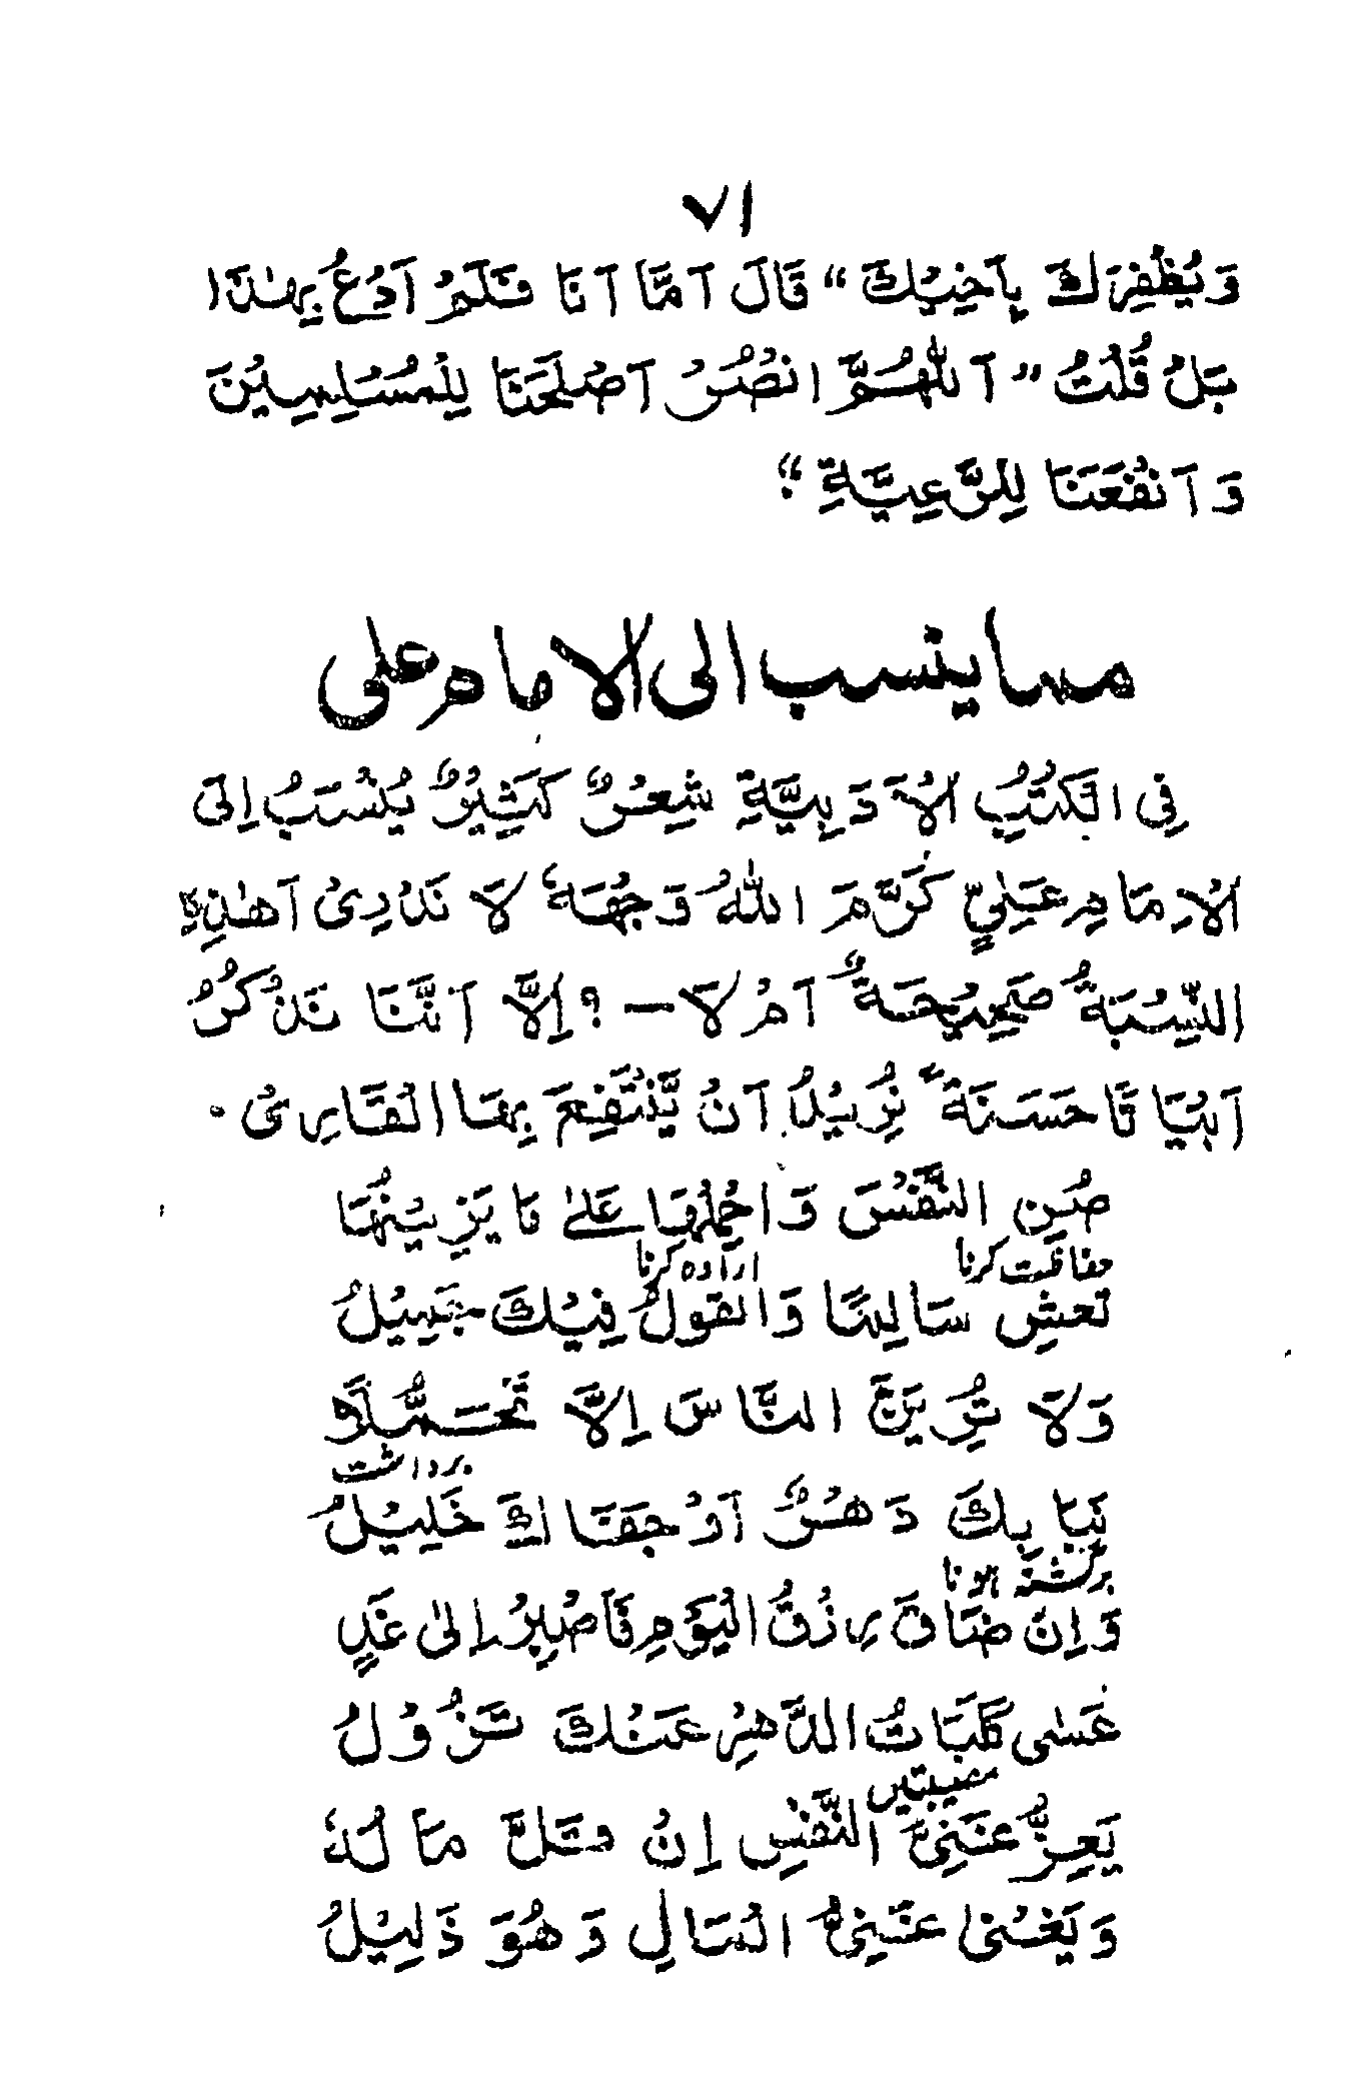 ۷۱
وَيُظْفِرَكَ بِاَخِيْكَ“ قَالَ اَمَّا اَنَا فَلَمْ اَدْعُ بِهٰذَا
بَلْ قُلْتُ ”اَللّٰهُمَّ انْصُرْ اَصْلَحَنَا لِلْمُسْلِمِيْنَ
وَاَنْفَعَنَا لِلرَّعِيَّةِ“؛
ما ينسب الى الامام على
فِى الْكُتُبِ الْاَدَبِيَّةِ شِعْرٌ كَثِيْرٌ يُنْسَبُ اِلَى
الْاِمَامِ عَلِيٍّ كَرَّمَ اللّٰهُ وَجْهَهٗ لَا نَدْرِىْ اَهٰذِهِ
النِّسْبَةُ صَحِيْحَةٌ اَمْ لَا — ؟ اِلَّا اَنَّنَا نَذْكُرُ
اَبْيَاتًا حَسَنَةً نُرِيْدُ اَنْ يَّنْتَفِعَ بِهَا الْقَارِىْ ۰
صُنِ النَّفْسَ وَاحْمِلْهَا عَلٰى مَا يَزِيْنُهَا
حفاظت کرنا ارادہ کرنا
تَعِشْ سَالِمًا وَالْقَوْلُ فِيْكَ جَمِيْلُ
وَلَا تُرِيَنَّ النَّاسَ اِلَّا تَحَمُّلًا
برداشت
نَبَا بِكَ دَهْرٌ اَوْ جَفَاكَ خَلِيْلُ
برگشتہ ہونا
وَاِنْ ضَاقَ رِزْقُ الْيَوْمِ فَاصْبِرْ اِلٰى غَدٍ
عَسٰى نَكَبَاتُ الدَّهْرِ عَنْكَ تَزُوْلُ
مصیبتیں
يَعِزُّ غَنِىُّ النَّفْسِ اِنْ قَلَّ مَالُهٗ
وَيَغْنٰى غَنِىُّ الْمَالِ وَهُوَ ذَلِيْلُ